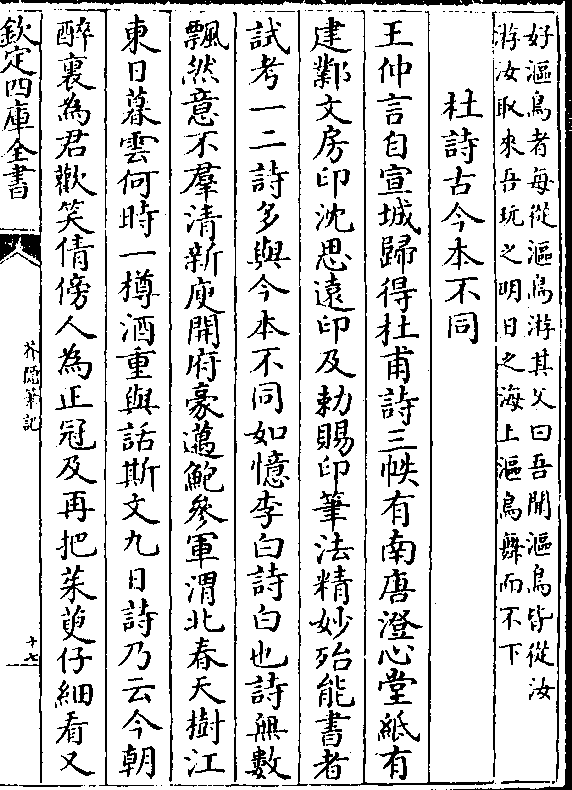 好漚鳥者每從漚鳥游其父曰吾聞漚鳥皆從汝
游汝取來吾玩之明日之海上漚鳥舞而不下
杜詩古今本不同
王仲言自宣城歸得杜甫詩三帙有南唐澄心堂紙有
建鄴文房印沈思遠印及勅賜印筆法精妙殆能書者
試考一二詩多與今本不同如憶李白詩白也詩無數
飄然意不羣清新庾開府豪邁鮑參軍渭北春天樹江
東日暮雲何時一樽酒重與話斯文九日詩乃云今朝
醉裏為君歡笑倩傍人為正冠及再把茱萸仔細看又
欽定四庫全書
芥隱筆記
十七